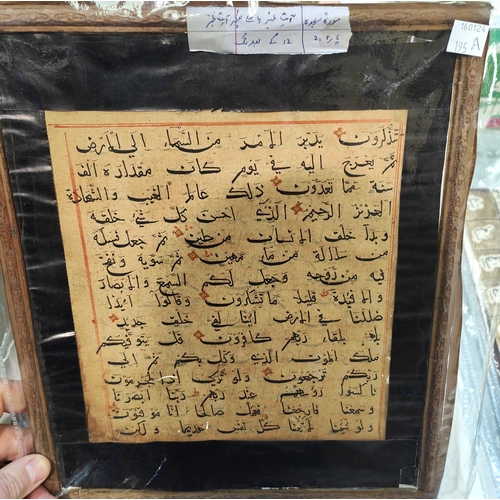 سورة سجدہ
پارہ ۲۱
160124
195 A
تتذكرون يدبر الامر من السماء الى الارض
ثم يعرج اليه في يوم كان مقداره الف
سنة مما تعدون ذلك عالم الغيب والشهادة
العزيز الرحيم الذي احسن كل شئ خلقه
وبدا خلق الانسان من طين ثم جعل نسله
من سلالة من ماء مهين ثم سويه ونفخ
فيه من روحه وجعل لكم السمع والابصار
والافئدة قليلا ما تشكرون وقالوا ائذا
ضللنا في الارض ائنا لفي خلق جديد
بلقاء ربهم كافرون قل يتوفيكم
ملك الموت الذي وكل بكم ثم الى
ربكم ترجعون ولو ترى اذ المجرمون
ناكسوا رؤسهم عند ربهم ربنا ابصرنا
وسمعنا فارجعنا نعمل صالحا انا موقنون
ولو شئنا لاتينا كل نفس هديها ولكن